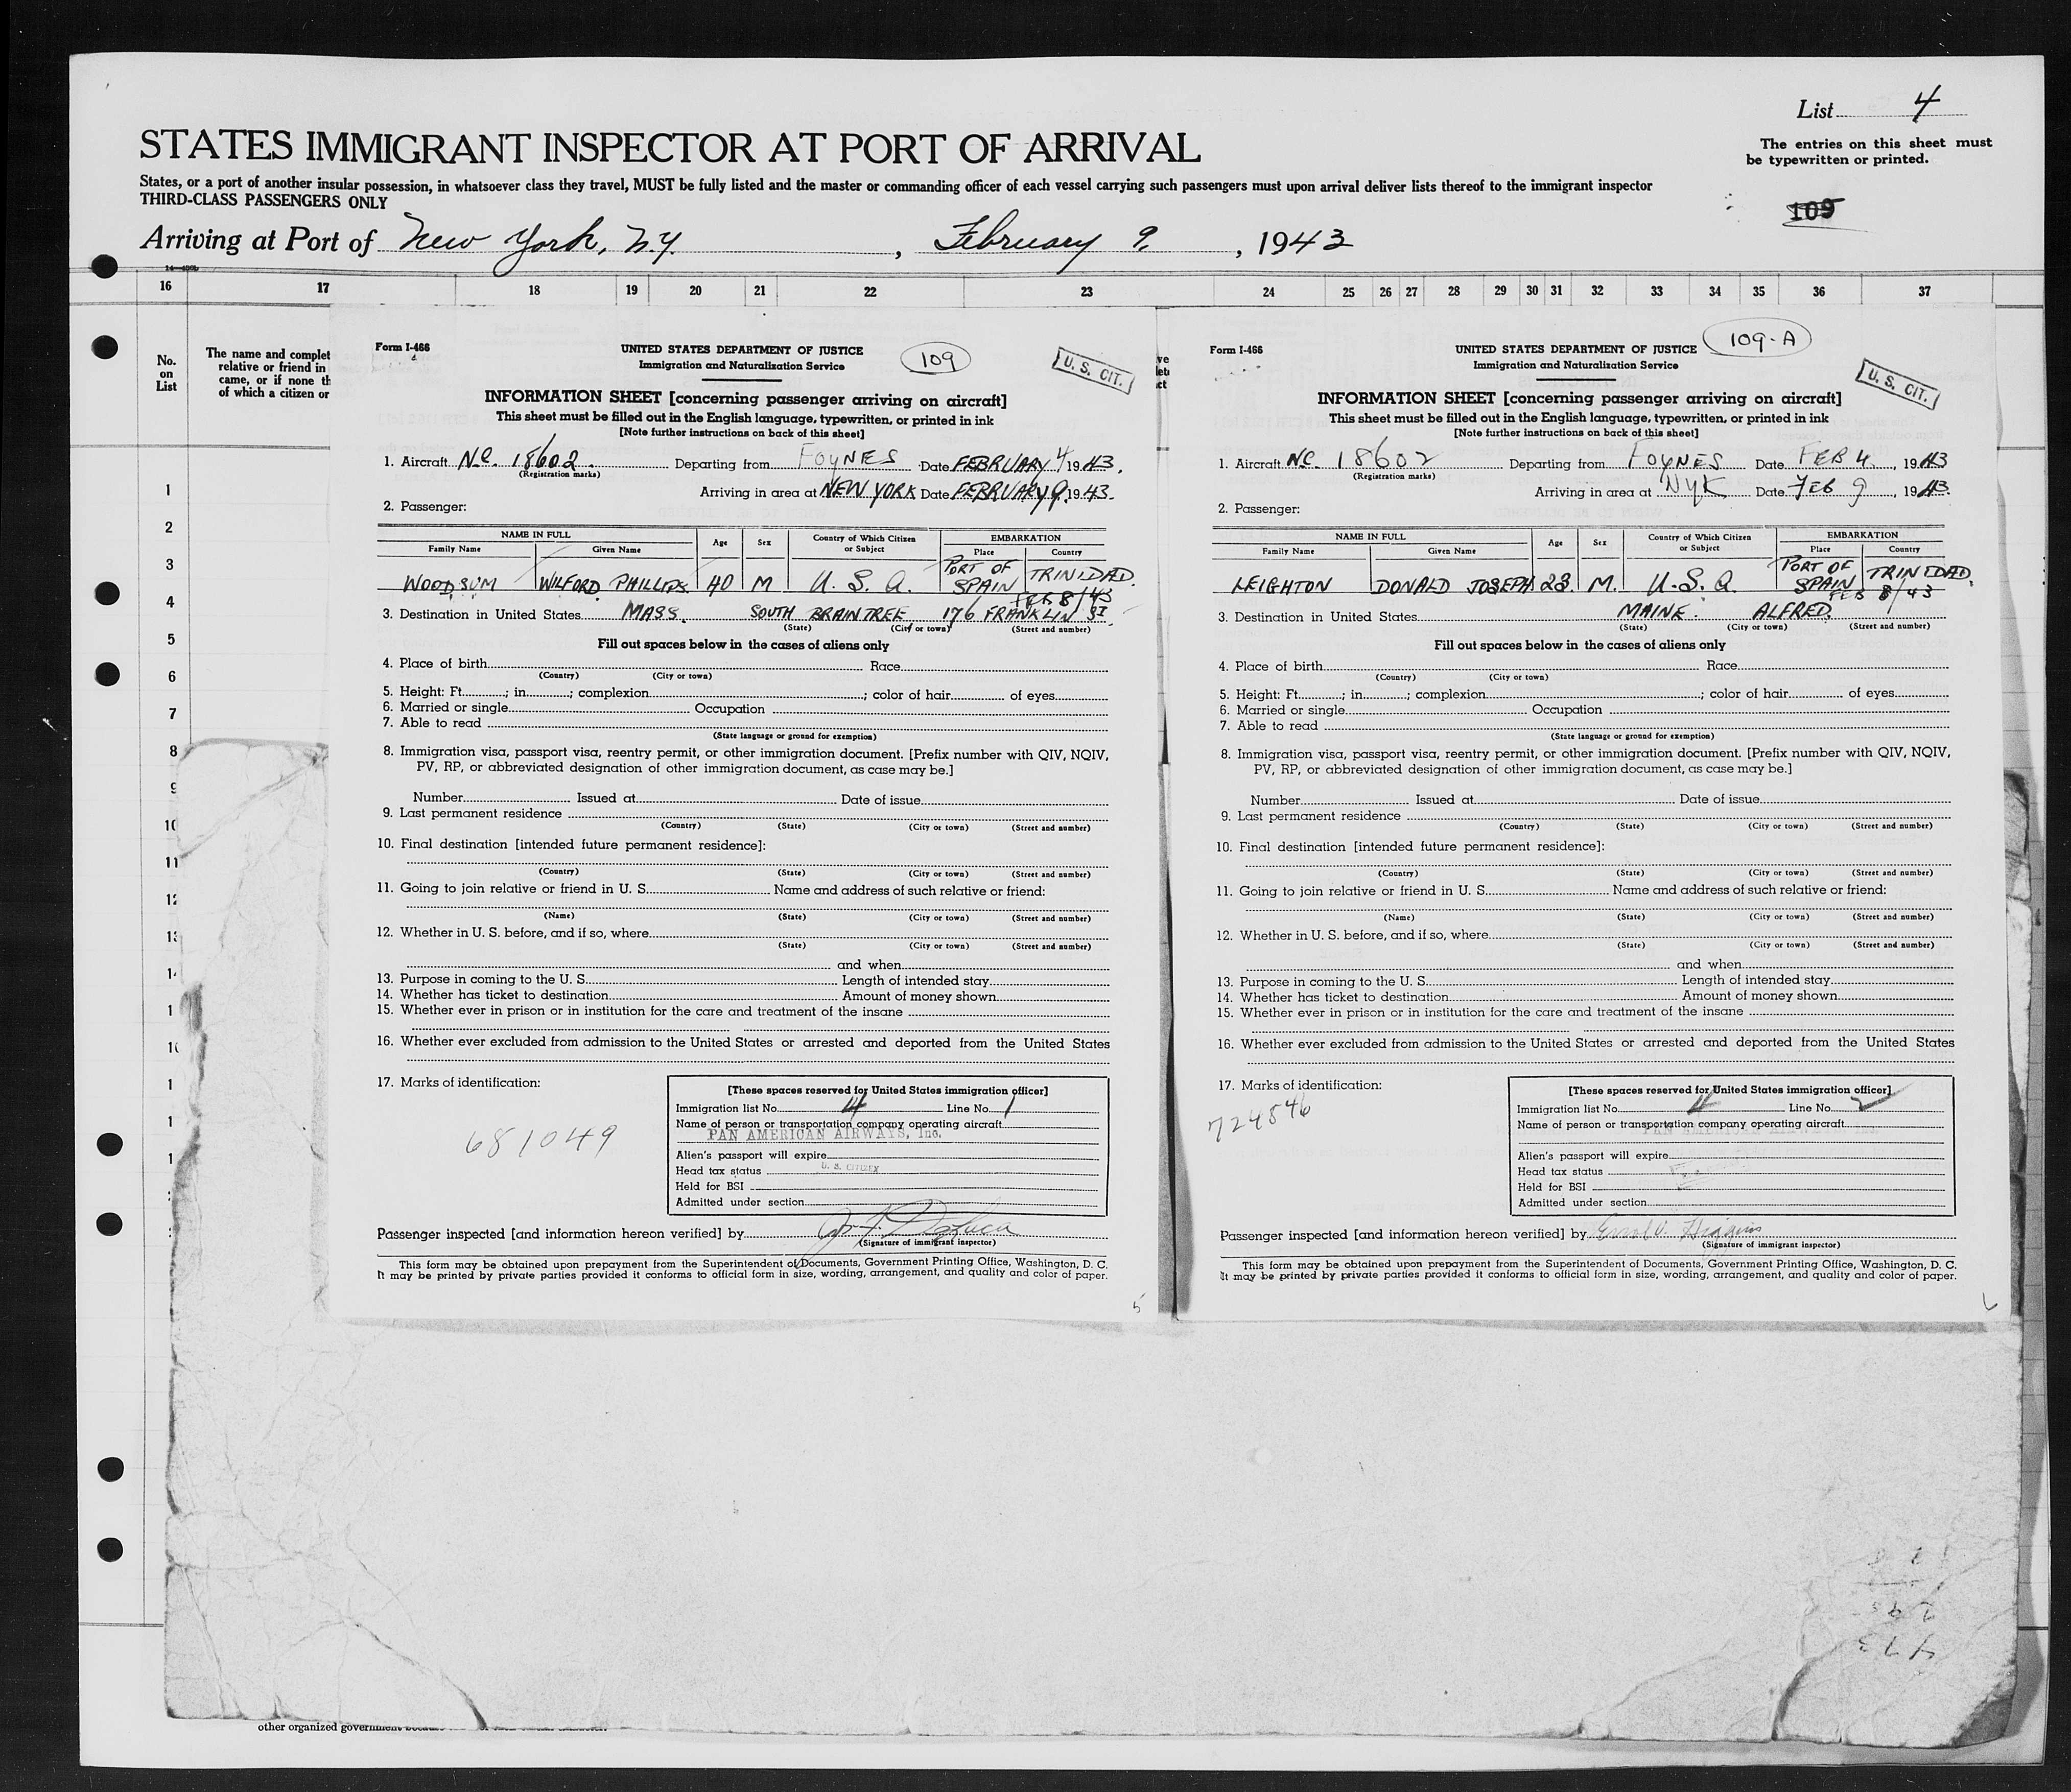 List 4
The entries on this sheet must
be typewritten or printed.
STATES IMMIGRANT INSPECTOR AT PORT OF ARRIVAL
States, or a port of another insular possession, in whatsoever class they travel, MUST be fully listed and the master or commanding officer of each vessel carrying such passengers must upon arrival deliver lists thereof to the immigrant inspector
THIRD-CLASS PASSENGERS ONLY
109
Arriving at Port of New York, N.Y. , February 9, , 1943
16 17 18 19 20 21 22 23 24 25 26 27 28 29 30 31 32 33 34 35 36 37
No.
on
List
The name and complet
relative or friend in
came, or if none th
of which a citizen or
1
2
3
4
5
6
7
8
9
10
11
Form I-466
UNITED STATES DEPARTMENT OF JUSTICE
109
U. S. CIT.
Immigration and Naturalization Service
INFORMATION SHEET [concerning passenger arriving on aircraft]
This sheet must be filled out in the English language, typewritten, or printed in ink
[Note further instructions on back of this sheet]
1. Aircraft NC. 18602. Departing from FOYNES Date FEBRUARY 4 1943.
(Registration marks)
Arriving in area at NEW YORK Date FEBRUARY 9, 1943.
2. Passenger:
NAME IN FULL Age Sex Country of Which Citizen or Subject EMBARKATION
Family Name Given Name Place Country
WOODSUM WILFORD PHILLIPS. 40 M U. S. A. PORT OF SPAIN TRINIDAD.
FEB 8/43
3. Destination in United States MASS. SOUTH BRAINTREE 176 FRANKLIN ST.
(State) (City or town) (Street and number)
Fill out spaces below in the cases of aliens only
4. Place of birth Race
(Country) (City or town)
5. Height: Ft. ; in. ; complexion ; color of hair of eyes
6. Married or single Occupation
7. Able to read
(State language or ground for exemption)
8. Immigration visa, passport visa, reentry permit, or other immigration document. [Prefix number with QIV, NQIV,
PV, RP, or abbreviated designation of other immigration document, as case may be.]
Number Issued at Date of issue
9. Last permanent residence
(Country) (State) (City or town) (Street and number)
10. Final destination [intended future permanent residence]:
(Country) (State) (City or town) (Street and number)
11. Going to join relative or friend in U. S. Name and address of such relative or friend:
(Name) (State) (City or town) (Street and number)
12. Whether in U. S. before, and if so, where
(State) (City or town) (Street and number)
and when
13. Purpose in coming to the U. S. Length of intended stay
14. Whether has ticket to destination Amount of money shown
15. Whether ever in prison or in institution for the care and treatment of the insane
16. Whether ever excluded from admission to the United States or arrested and deported from the United States
17. Marks of identification:
681049
[These spaces reserved for United States immigration officer]
Immigration list No. 4 Line No. 1
Name of person or transportation company operating aircraft
PAN AMERICAN AIRWAYS, Inc.
Alien's passport will expire
Head tax status U. S. CITIZEN
Held for BSI
Admitted under section
Passenger inspected [and information hereon verified] by
(Signature of immigrant inspector)
This form may be obtained upon prepayment from the Superintendent of Documents, Government Printing Office, Washington, D. C.
It may be printed by private parties provided it conforms to official form in size, wording, arrangement, and quality and color of paper.
5
Form I-466
UNITED STATES DEPARTMENT OF JUSTICE
109-A
U. S. CIT.
Immigration and Naturalization Service
INFORMATION SHEET [concerning passenger arriving on aircraft]
This sheet must be filled out in the English language, typewritten, or printed in ink
[Note further instructions on back of this sheet]
1. Aircraft NC. 18602 Departing from FOYNES Date FEB 4 , 1943
(Registration marks)
Arriving in area at NYK Date FEB 9 , 1943.
2. Passenger:
NAME IN FULL Age Sex Country of Which Citizen or Subject EMBARKATION
Family Name Given Name Place Country
LEIGHTON DONALD JOSEPH 23. M. U.S.A. PORT OF SPAIN TRINIDAD.
FEB 8/43
3. Destination in United States MAINE. ALFRED.
(State) (City or town) (Street and number)
Fill out spaces below in the cases of aliens only
4. Place of birth Race
(Country) (City or town)
5. Height: Ft. ; in. ; complexion ; color of hair of eyes
6. Married or single Occupation
7. Able to read
(State language or ground for exemption)
8. Immigration visa, passport visa, reentry permit, or other immigration document. [Prefix number with QIV, NQIV,
PV, RP, or abbreviated designation of other immigration document, as case may be.]
Number Issued at Date of issue
9. Last permanent residence
(Country) (State) (City or town) (Street and number)
10. Final destination [intended future permanent residence]:
(Country) (State) (City or town) (Street and number)
11. Going to join relative or friend in U. S. Name and address of such relative or friend:
(Name) (State) (City or town) (Street and number)
12. Whether in U. S. before, and if so, where
(State) (City or town) (Street and number)
and when
13. Purpose in coming to the U. S. Length of intended stay
14. Whether has ticket to destination Amount of money shown
15. Whether ever in prison or in institution for the care and treatment of the insane
16. Whether ever excluded from admission to the United States or arrested and deported from the United States
17. Marks of identification:
724546
[These spaces reserved for United States immigration officer]
Immigration list No. 4 Line No. 2
Name of person or transportation company operating aircraft
PAN AMERICAN AIRWAYS
Alien's passport will expire
Head tax status
Held for BSI
Admitted under section
Passenger inspected [and information hereon verified] by Higgins
(Signature of immigrant inspector)
This form may be obtained upon prepayment from the Superintendent of Documents, Government Printing Office, Washington, D. C.
It may be printed by private parties provided it conforms to official form in size, wording, arrangement, and quality and color of paper.
6
other organized government